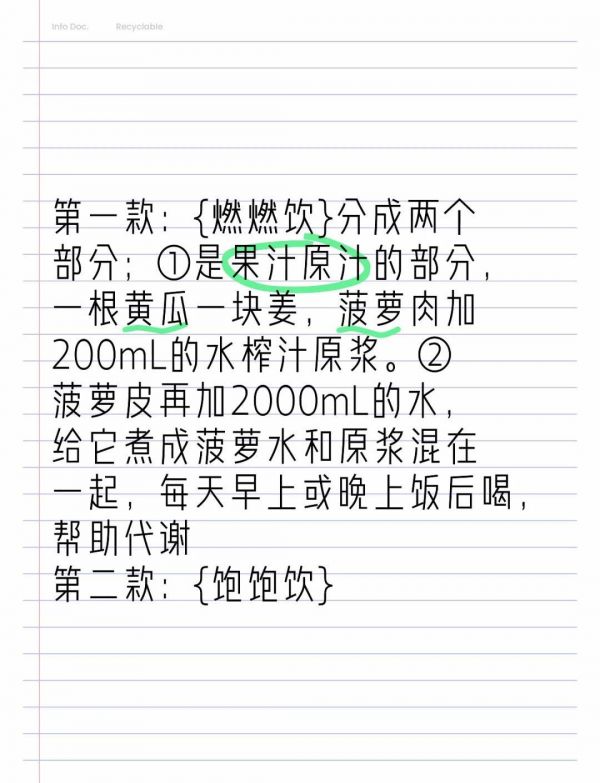 Info Doc. Recyclable
第一款：{燃燃饮}分成两个
部分；①是果汁原汁的部分，
一根黄瓜一块姜，菠萝肉加
200mL的水榨汁原浆。②
菠萝皮再加2000mL的水，
给它煮成菠萝水和原浆混在
一起，每天早上或晚上饭后喝，
帮助代谢
第二款：{饱饱饮}